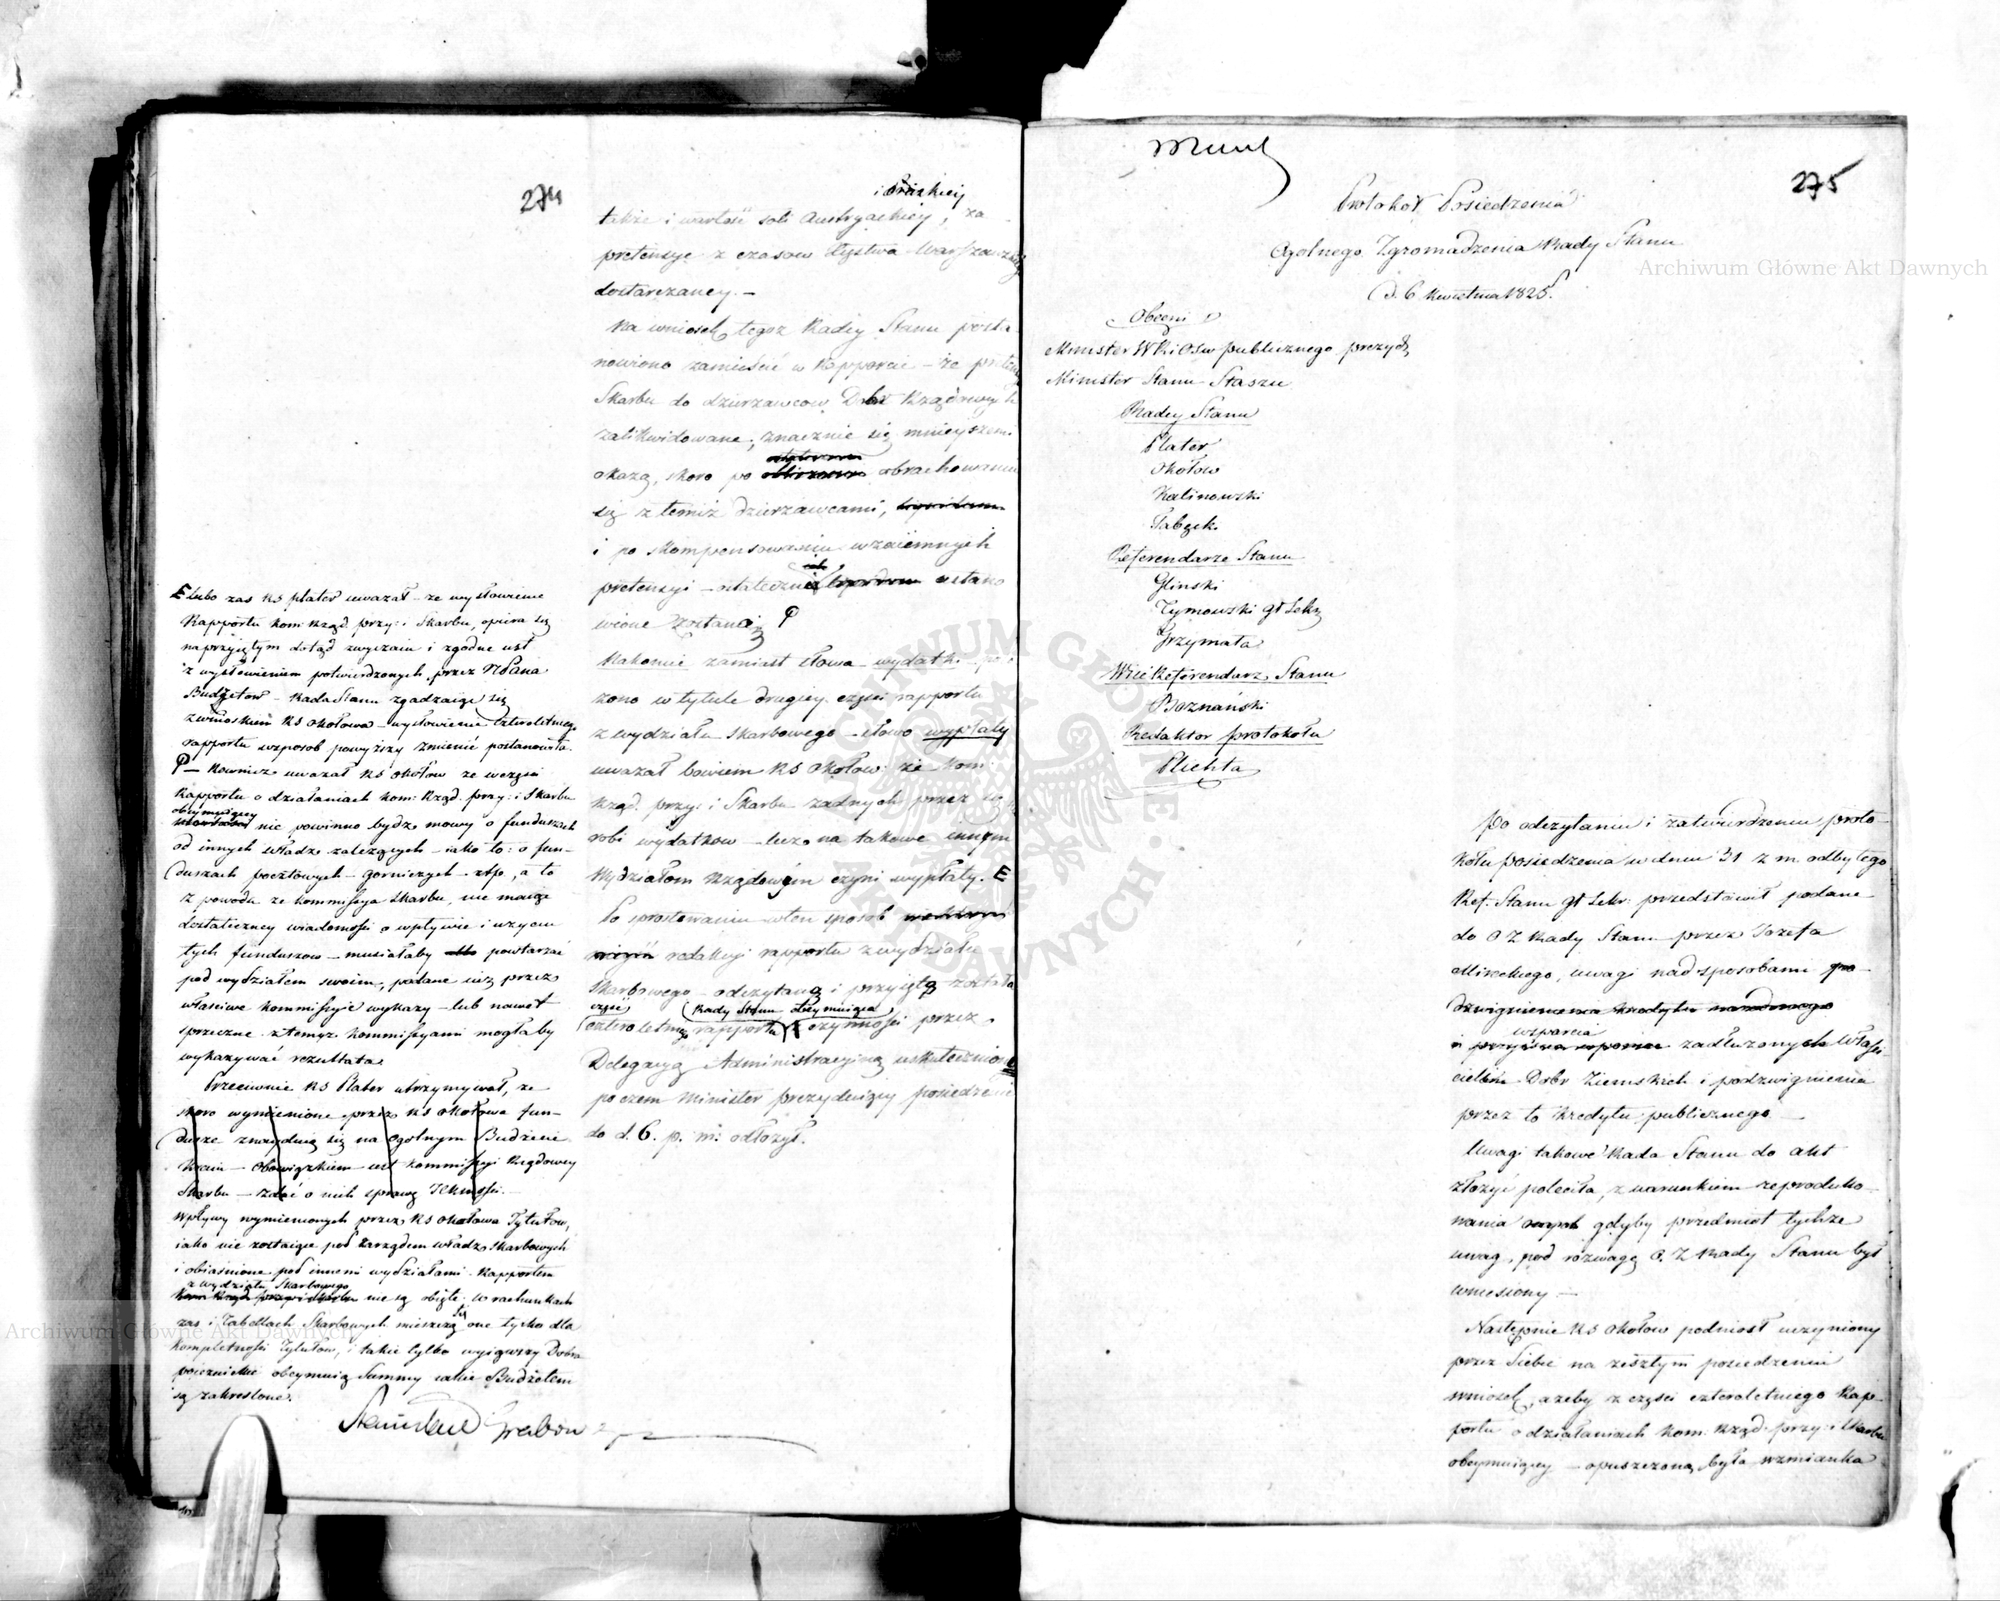 274
i Pruskiey
także i wartość soli Austryackiey, za
pretensye z czasow Xięstwa Warszawskiego
dostarczaney. –
Na wniosek tegoż Radcy Stanu posta
nowiono zamieścić w Rapporcie – że
Skarbu do dzierzawcow Dobr Rządowych
zalikwidowane, znacznie się mnieyszemi
okażą, skoro po obrachowaniu
się z temiż dzierzawcami,
i po skompensowaniu wzaiemnych
pretensyi – ostatecznie ustano
wione zostaną
Nakoniec zamiast słowa wydatki
żono w tytule drugiey części rapportu
z wydziału skarbowego – słowo wypłaty
uważał bowiem RS Okołow że Kom:
Rząd. przy: i Skarbu żadnych przez się
robi wydatkow – lecz na takowe innym
Wydziałom Rządowym czyni wypłaty. E
Po sprostowaniu w ten sposob
redakcyi rapportu z wydziału
Skarbowego – odczytaną i przyiętą została
część (Rady Stanu obeymuiąca
czteroletniego rapportu czynności przez
Delegacyą Administracyiną uskutecznione
poczem Minister prezyduiący posiedzenie
do d. 6. p. m: odłożył.
E lubo zas RS Plater uważał – że wysłowienie
Rapportu Kom: Rząd. przy: i Skarbu, opiera się
na przyiętym dotąd zwyczaiu i zgodne iest
z wysłowieniem potwierdzonych przez NPana
Budżetow – Rada Stanu zgadzaiąc się
z wnioskiem RS Okołowa – wysłowienie czteroletniego
rapportu w sposob powyższy zmienić postanowiła.
– Rownież uważał RS Okołow że w części
Rapportu o działaniach Kom: Rząd. przy: i Skarbu
obeymuiącey
nie powinno bydź mowy o funduszach
od innych władz zależących – iako to: o fun–
duszach pocztowych – gorniczych – etc, a to
z powodu że Kommissya Skarbu, nie maiąc
dostateczney wiadomości o wpływie i użyciu
tych funduszow – musiałaby powtarzać
pod wydziałem swoim, podane iuż przez
właściwe Kommissye wykazy – lub nawet
sprzeczne z temyż Kommissyami mogłaby
wykazywać rezultata.
Przeciwnie RS Plater utrzymywał, że
skoro wymienione przez RS Okołowa fun–
dusze znayduią się na ogolnym Budżecie
Kraiu – obowiązkiem iest Kommissyi Rządowey
Skarbu – zdać o nich sprawę
Wpływy wymienionych przez RS Okołowa Tytułow,
iako nie zostaiące pod zarządem władz skarbowych
i obiaśnione pod innemi wydziałami. Rapportem
z wydziału Skarbowego
Kom: Rząd. przy: i Skarbu nie są obięte. w rachunkach
zaś i Tabellach Skarbowych mieszczą się one tylko dla
kompletności Tytułow, i takie tylko wyiąwszy Dobra
poiezuickie obeymuią Summy iakie Budżetem
są zakreślone.
Stanisław Grabow
275
Protokoł Posiedzenia
Ogolnego Zgromadzenia Rady Stanu
d. 6 Kwietnia 1825.
Obecni
Minister WR i Ośw publicznego prezyd.
Minister Stanu Staszic
Radcy Stanu
Plater
Okołow
Kalinowski
Tabęcki
Referendarze Stanu
Gliński
Tymowski gł Sekr
Grzymała
Wice Referendarz Stanu
Boznański
Redaktor protokołu
Plichta
Po odczytaniu i zatwierdzeniu proto–
kołu posiedzenia w dniu 31 z m. odbytego
Ref. Stanu gł Sekr: przedstawił podane
do O Z Rady Stanu przez Jozefa
Mireckiego, uwagi nad sposobami po–
dzwignienia kredytu narodowego
wsparcia
zadłużonych Właści
cielow Dobr Ziemskich i podzwignienia
przez to kredytu publicznego –
Uwagi takowe Rada Stanu do akt
złożyć poleciła, z warunkiem reproduko–
wania gdyby przedmiot tychże
uwag, pod rozwagę O. Z Rady Stanu był
wniesiony –
Następnie RS Okołow podniosł uczyniony
przez Siebie na zeszłym posiedzeniu
wniosek, ażeby z części czteroletniego Rap–
portu o działaniach Kom: Rząd. przy: i Skarbu
obeymuiącey – opuszczoną była wzmianka
Archiwum Główne Akt Dawnych
Archiwum Główne Akt Dawnych
ARCHIWUM GŁÓWNE AKT DAWNYCH